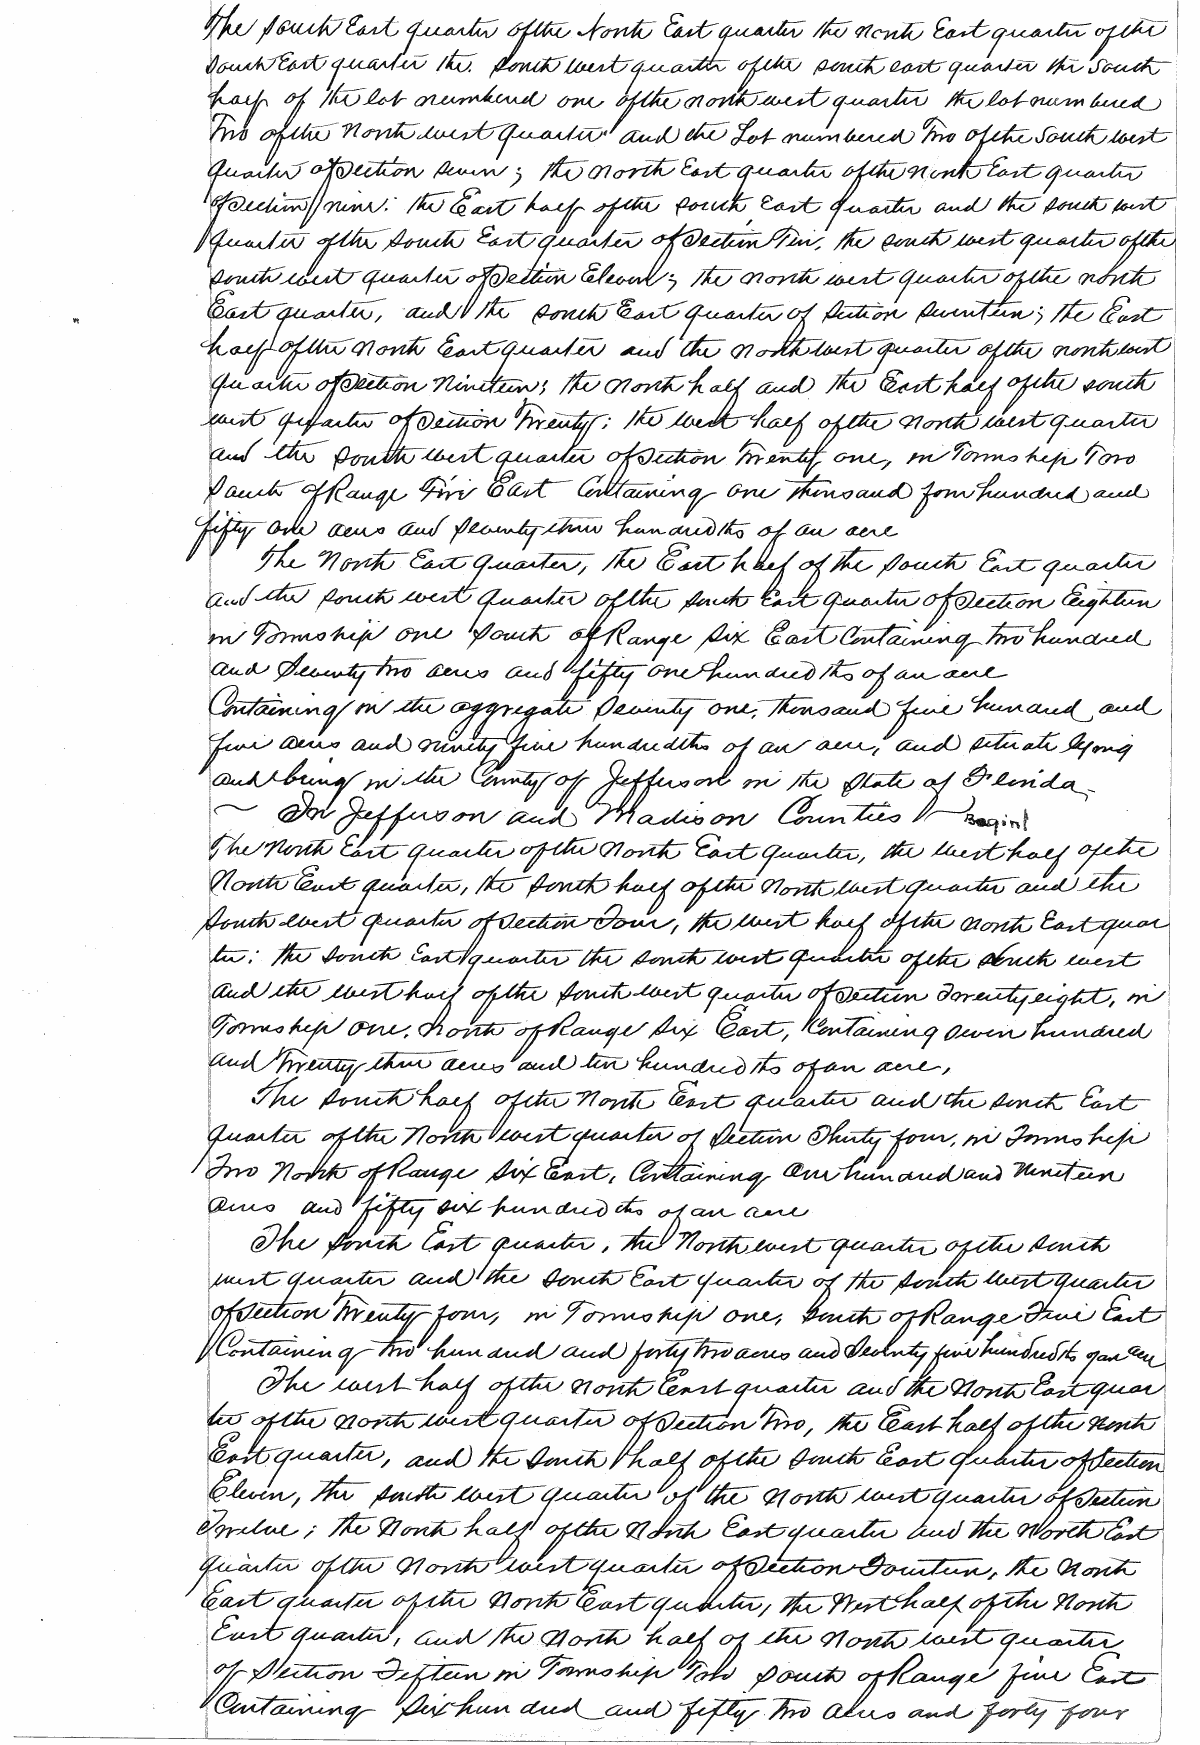 The South East quarter of the North East quarter the North East quarter of the
South East quarter the. South west quarter of the south east quarter the South
half of the lot numbered one of the north west quarter the lot numbered
Two of the North west quarter and the Lot numbered Two of the South west
quarter of Section seven; the North East quarter of the North East quarter
of Section nine: the East half of the South East quarter and the South west
quarter of the South East quarter of Section Ten, the South west quarter of the
South west quarter of Section Eleven; the North west quarter of the North
East quarter, and the South East quarter of Section Seventeen; the East
half of the North East quarter and the North west quarter of the north west
quarter of Section Nineteen; the North half and the East half of the South
west quarter of Section Twenty; the west half of the North west quarter
and the South west quarter of Section Twenty one, in Township Two
South of Range Five East Containing one thousand four hundred and
fifty one acres and Seventy three hundredths of an acre
The North East quarter, the East half of the South East quarter
and the South west quarter of the South East quarter of Section Eighteen
in Township one South of Range Six East Containing two hundred
and Seventy two acres and fifty one hundredths of an acre
Containing in the aggregate Seventy one, thousand five hundred and
five acres and ninety five hundredths of an acre, and situate lying
and being in the County of Jefferson in the State of Florida
~ In Jefferson and Madison Counties ~ Begin!
The North East quarter of the North East quarter, the West half of the
North East quarter, the South half of the North west quarter and the
South west quarter of Section Four, the west half of the North East quar
ter: the South East quarter the South west quarter of the South west
and the West half of the South West quarter of Section Twenty eight, in
Township one, North of Range Six East, Containing Seven hundred
and Twenty three acres and ten hundredths of an acre,
The South half of the North East quarter and the South East
quarter of the North west quarter of Section Thirty four, in Township
Two North of Range Six East, Containing One hundred and Nineteen
acres and fifty six hundredths of an acre
The South East quarter, the North west quarter of the South
west quarter and the South East quarter of the South West quarter
of Section Twenty four, in Township one, South of Range Five East
Containing two hundred and forty two acres and Seventy five hundredths of an acre
The west half of the North East quarter and the North East quar
ter of the North west quarter of Section Two, the East half of the North
East quarter, and the South half of the South East quarter of Section
Eleven, the South west quarter of the North west quarter of Section
Twelve; the North half of the North East quarter and the North East
quarter of the North west quarter of Section Fourteen, the North
East quarter of the North East quarter, the West half of the North
East quarter, and the North half of the North west quarter
of Section Fifteen in Township Two South of Range five East
Containing Six hundred and fifty two acres and forty four